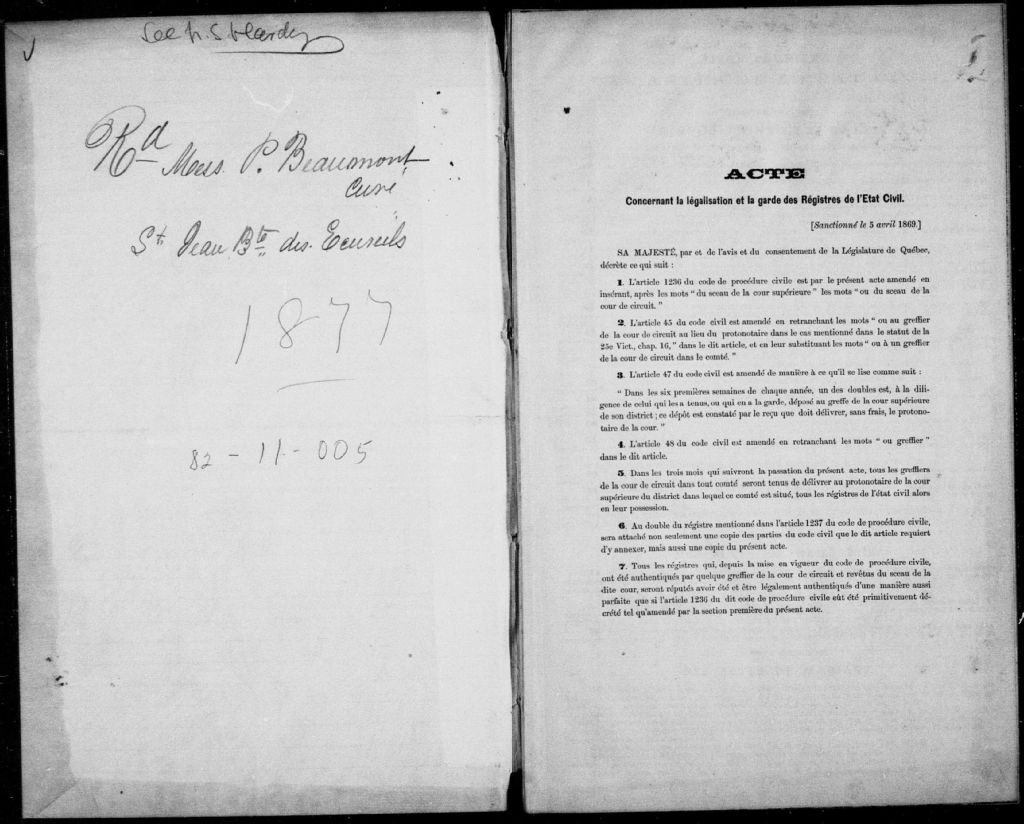 Rd Mess. P. Beaumont
Curé
St Jean Bte des Ecureuils
1877
82-11-005
ACTE
Concernant la légalisation et la garde des Régistres de l'Etat Civil.
[Sanctionné le 5 avril 1869.]
SA MAJESTÉ, par et de l'avis et du consentement de la Législature de Québec,
décrète ce qui suit :
1. L'article 1236 du code de procédure civile est par le présent acte amendé en
insérant, après les mots “ du sceau de la cour supérieure ” les mots “ ou du sceau de la
cour de circuit. ”
2. L'article 45 du code civil est amendé en retranchant les mots “ ou au greffier
de la cour de circuit au lieu du protonotaire dans le cas mentionné dans le statut de la
25e Vict., chap. 16, ” dans le dit article, et en leur substituant les mots “ ou à un greffier
de la cour de circuit dans le comté. ”
3. L'article 47 du code civil est amendé de manière à ce qu'il se lise comme suit :
“ Dans les six premières semaines de chaque année, un des doubles est, à la dili-
gence de celui qui les a tenus, ou qui en a la garde, déposé au greffe de la cour supérieure
de son district ; ce dépôt est constaté par le reçu que doit délivrer, sans frais, le protono-
taire de la cour. ”
4. L'article 48 du code civil est amendé en retranchant les mots “ ou greffier ”
dans le dit article.
5. Dans les trois mois qui suivront la passation du présent acte, tous les greffiers
de la cour de circuit dans tout comté seront tenus de délivrer au protonotaire de la cour
supérieure du district dans lequel ce comté est situé, tous les régistres de l'état civil alors
en leur possession.
6. Au double du régistre mentionné dans l'article 1237 du code de procédure civile,
sera attaché non seulement une copie des parties du code civil que le dit article requiert
d'y annexer, mais aussi une copie du présent acte.
7. Tous les régistres qui, depuis la mise en vigueur du code de procédure civile,
ont été authentiqués par quelque greffier de la cour de circuit et revêtus du sceau de la
dite cour, seront réputés avoir été et être légalement authentiqués d'une manière aussi
parfaite que si l'article 1236 du dit code de procédure civile eût été primitivement dé-
crété tel qu'amendé par la section première du présent acte.